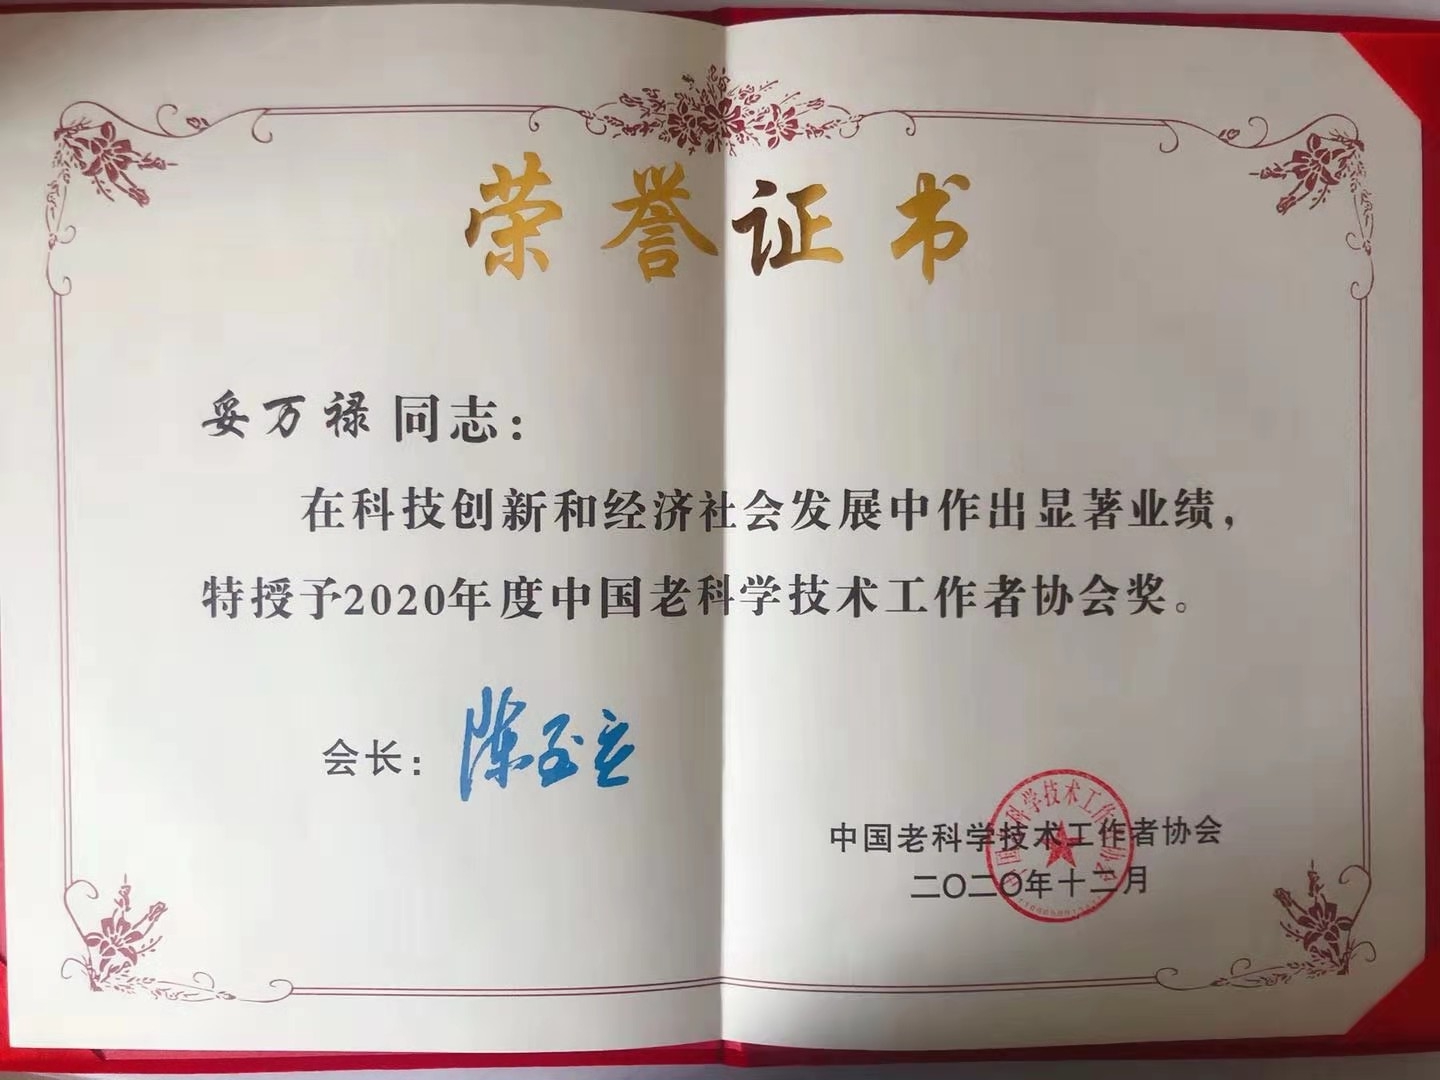 荣誉证书
妥万禄 同志：
在科技创新和经济社会发展中作出显著业绩，
特授予2020年度中国老科学技术工作者协会奖。
会长：陈至立
中国老科学技术工作者协会
二〇二〇年十二月